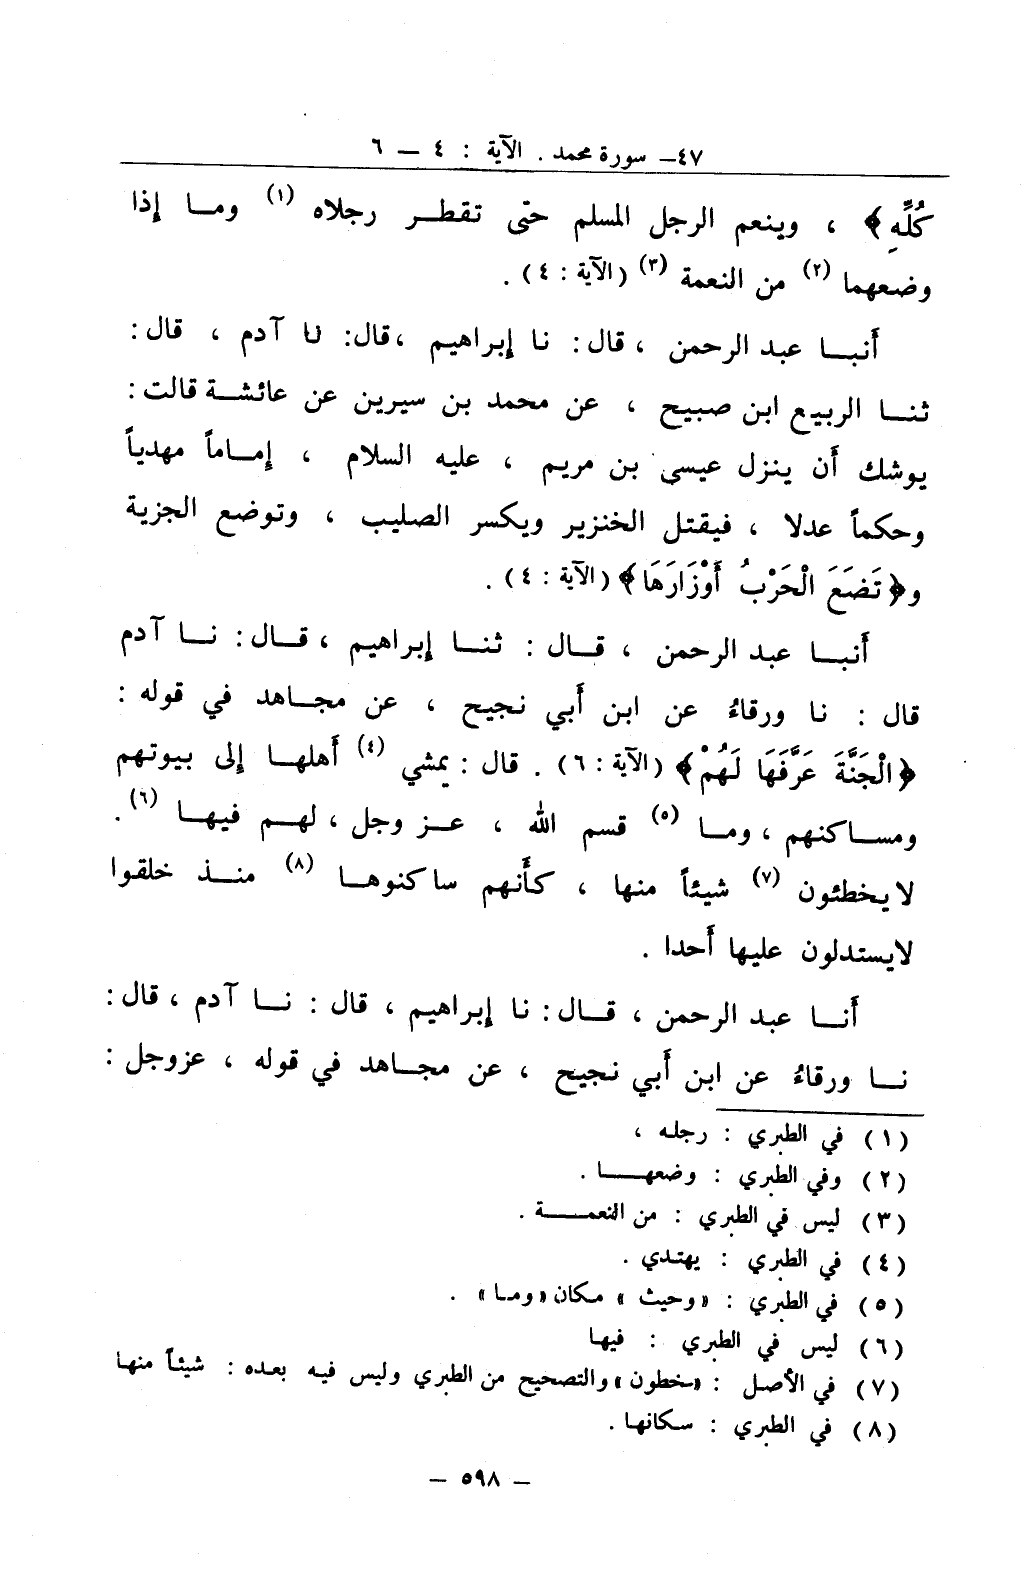 ٤٧ـ سورة محمد . الآية : ٤ ـ ٦
كُلِّهِ﴾ ، وينعم الرجل المسلم حتى تقطر رجلاه (١) وما إذا
وضعهما (٢) من النعمة (٣) (الآية : ٤) .
أنبا عبد الرحمن ، قال : نا إبراهيم ، قال : نا آدم ، قال :
ثنا الربيع ابن صبيح ، عن محمد بن سيرين عن عائشة قالت :
يوشك أن ينزل عيسى بن مريم ، عليه السلام ، إماماً مهدياً
وحكماً عدلا ، فيقتل الخنزير ويكسر الصليب ، وتوضع الجزية
و﴿تَضَعَ الْحَرْبُ أَوْزَارَهَا﴾ (الآية : ٤) .
أنبا عبد الرحمن ، قال : ثنا إبراهيم ، قال : نا آدم
قال : نا ورقاءُ عن ابن أبي نجيح ، عن مجاهد في قوله :
﴿الْجَنَّةَ عَرَّفَهَا لَهُمْ﴾ (الآية : ٦) . قال : يمشي (٤) أهلها إلى بيوتهم
ومساكنهم ، وما (٥) قسم الله ، عز وجل ، لهم فيها (٦) .
لايخطئون (٧) شيئاً منها ، كأنهم ساكنوها (٨) منذ خلقوا
لايستدلون عليها أحدا .
أنا عبد الرحمن ، قال : نا إبراهيم ، قال : نا آدم ، قال :
نا ورقاءُ عن ابن أبي نجيح ، عن مجاهد في قوله ، عزوجل :
(١) في الطبري : رجله ،
(٢) وفي الطبري : وضعها .
(٣) ليس في الطبري : من النعمة .
(٤) في الطبري : يهتدي .
(٥) في الطبري : «وحيث» مكان «وما» .
(٦) ليس في الطبري : فيها
(٧) في الأصل : «خطون» والتصحيح من الطبري وليس فيه بعده : شيئاً منها
(٨) في الطبري : سكانها .
ـ ٥٩٨ ـ